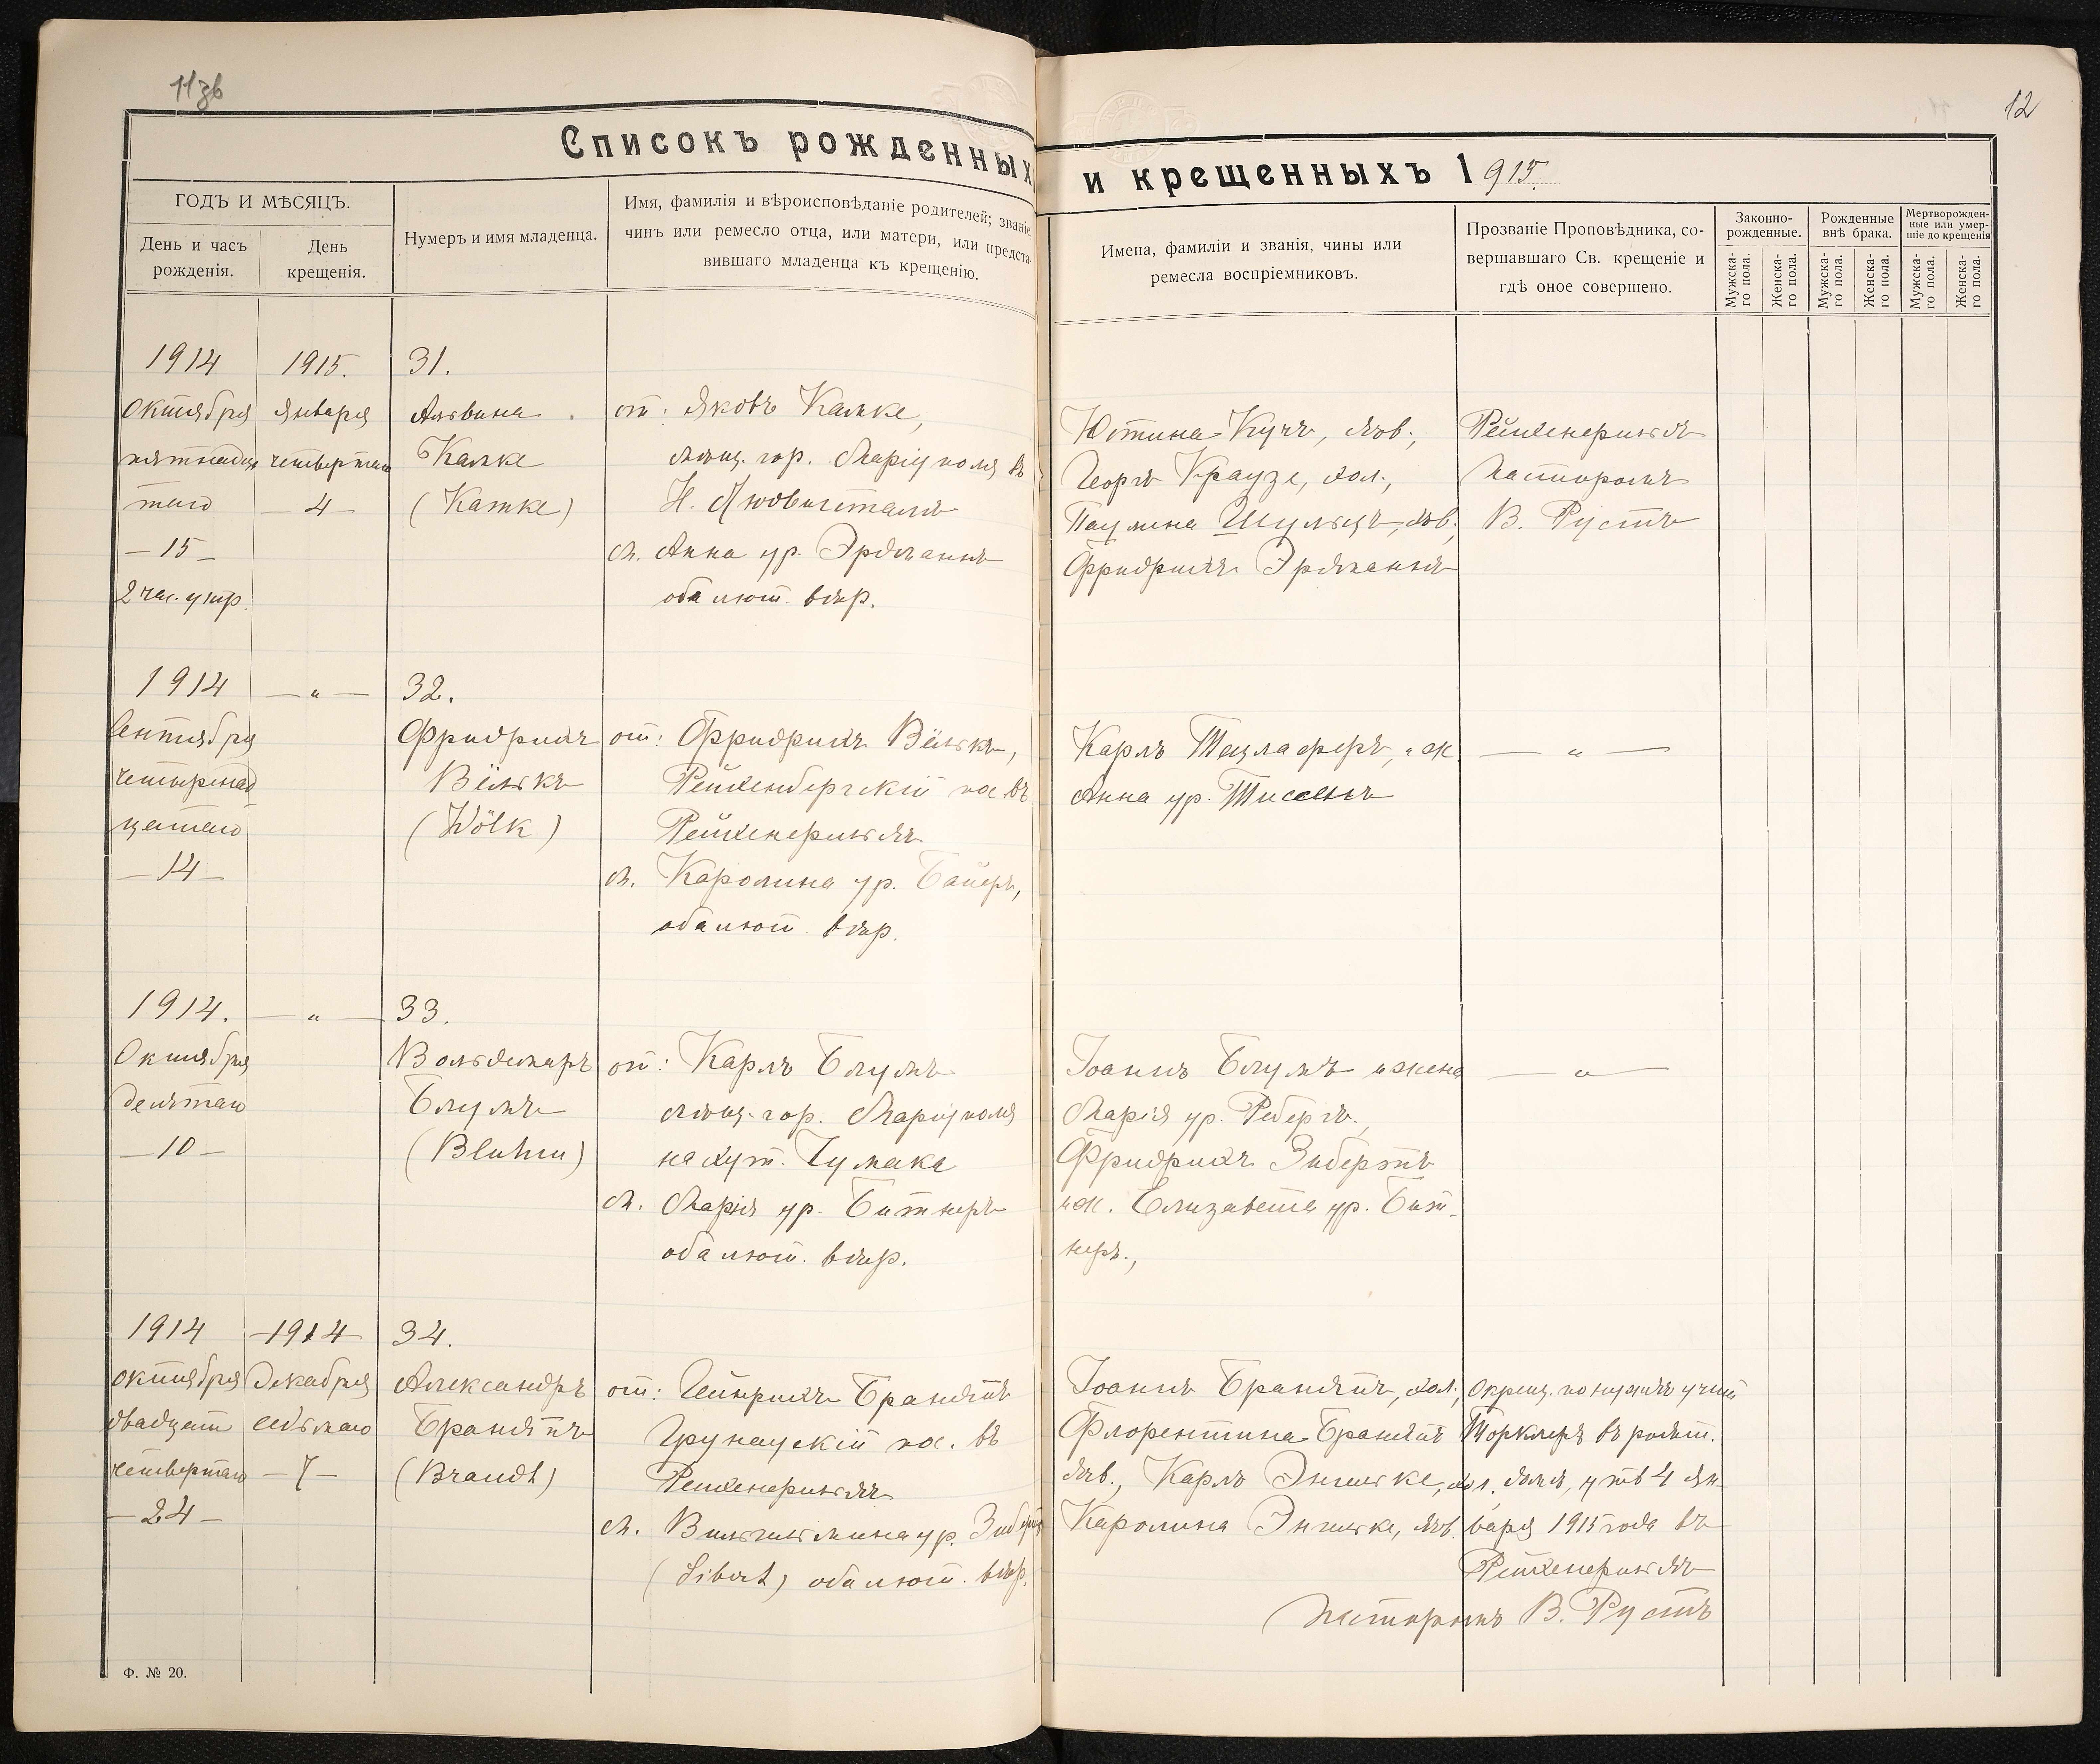 11зв
12
Списокъ рожденных
и крещенныхъ 1915.
ГОДЪ И МѢСЯЦЪ.
День и часъ
рожденія.
День
крещенія.
Нумеръ и имя младенца.
Имя, фамилія и вѣроисповѣданіе родителей; званіе,
чинъ или ремесло отца, или матери, или предста-
вившаго младенца къ крещенію.
Имена, фамиліи и званія, чины или
ремесла воспріемниковъ.
Прозваніе Проповѣдника, со-
вершавшаго Св. крещеніе и
гдѣ оное совершено.
Законно-
рожденные.
Рожденные
внѣ брака.
Мертворожден-
ные или умер-
шіе до крещенія
Мужска-
го пола.
Женска-
го пола.
Мужска-
го пола.
Женска-
го пола.
Мужска-
го пола.
Женска-
го пола.
1914
октября
пятнадца
таго
— 15 —
2 час. утр.
1915.
января
четвертаго
— 4 —
31.
Альвина
Камке
(Kamke)
от: Яковъ Камке,
мѣщ. гор. Маріуполя въ
Н. Людвигсталѣ
м. Анна ур. Эрдманъ
оба лют. вѣр.
Юстина Кучъ, дѣв.,
Георгъ Краузе, хол.,
Паулина Шульцъ, дѣв.
Фридрихъ Эрдманъ
Рейхенфельдъ
Пасторомъ
В. Рустъ
1914
Сентября
четырнад
цатаго
— 14 —
— „ —
32.
Фридрихъ
Вёлькъ
(Wölk)
от: Фридрихъ Вёлькъ,
Рейхенбергскій пос. въ
Рейхенфельдѣ
м. Каролина ур. Байеръ,
оба лют. вѣр.
Карлъ Тацлаферъ, и ж.
Анна ур. Тиссенъ
— „ —
1914.
Октября
десятаго
— 10 —
— „ —
33.
Вольдемаръ
Блумъ
(Bluhm)
от: Карлъ Блумъ
мѣщ. гор. Маріуполя
на хут. Чумака
м. Марія ур. Битнеръ
оба лют. вѣр.
Іоаннъ Блумъ и жена
Марія ур. Ребергъ,
Фридрихъ Зибертъ
и ж. Елизавета ур. Бит-
неръ.,
— „ —
1914
октября
двадцат
четвертаго
— 24 —
1914
Декабря
седьмаго
— 7 —
34.
Александръ
Брандтъ
(Brandt)
от: Гейнрихъ Брандтъ
Грунаускій пос. въ
Рейхенфельдѣ
м. Вильгельмина ур. Зиберт
(Sibert) оба лют. вѣр.
Іоаннъ Брандтъ, хол.,
Флорентина Брандтъ
дѣв., Карлъ Энгельке, хол.
Каролина Энгельке, дѣв.
Окрещ. по нуждѣ учит
Торклеръ въ родит.
домѣ, утв 4 ян-
варя 1915 года въ
Рейхенфельдѣ
Пасторомъ В. Рустъ
Ф. № 20.